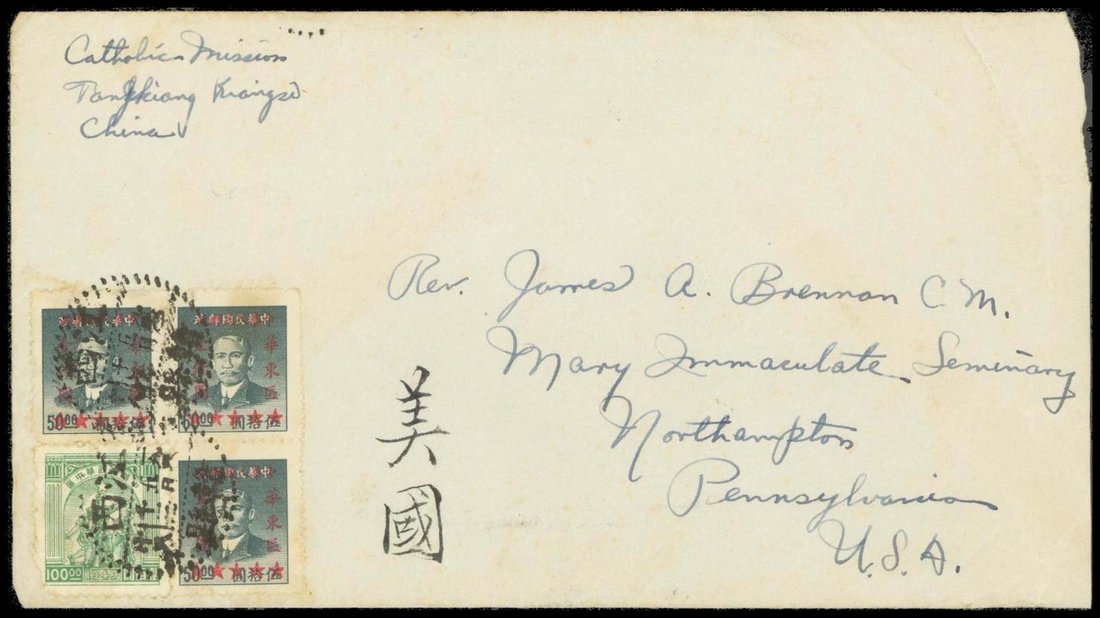 Catholic Mission
Tangkiang Kiangsi
China
Rev. James A. Brennan C.M.
Mary Immaculate Seminary
Northampton
Pennsylvania
U.S.A.
美
國
中華民國郵政
華東區
50.00
中華民國郵政
華東區
50.00 伍拾圓
100.00
中華民國郵政
華東區
50.00 伍拾圓
江西